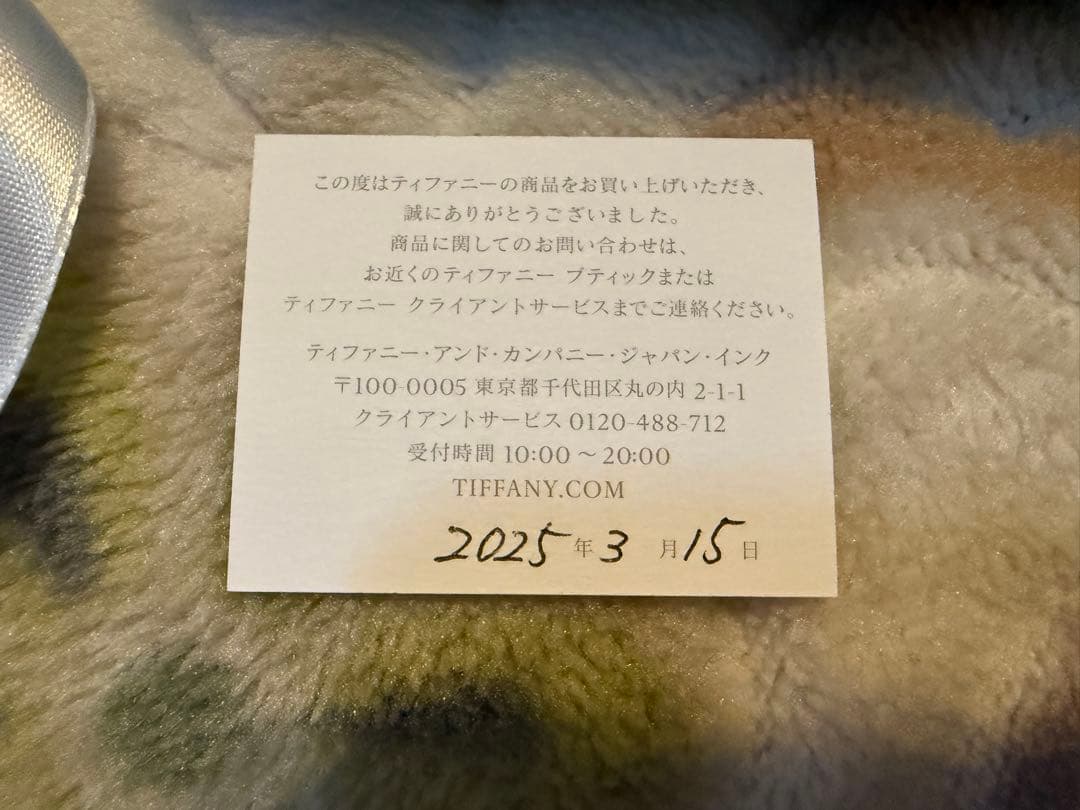 この度はティファニーの商品をお買い上げいただき、
誠にありがとうございました。
商品に関してのお問い合わせは、
お近くのティファニー ブティックまたは
ティファニー クライアントサービスまでご連絡ください。
ティファニー・アンド・カンパニー・ジャパン・インク
〒100-0005 東京都千代田区丸の内 2-1-1
クライアントサービス 0120-488-712
受付時間 10:00 〜 20:00
TIFFANY.COM
2025 年 3 月 15 日